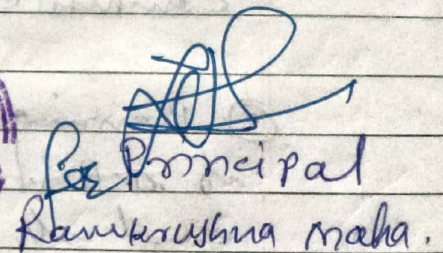 for Principal
Ramkrushna Maha.